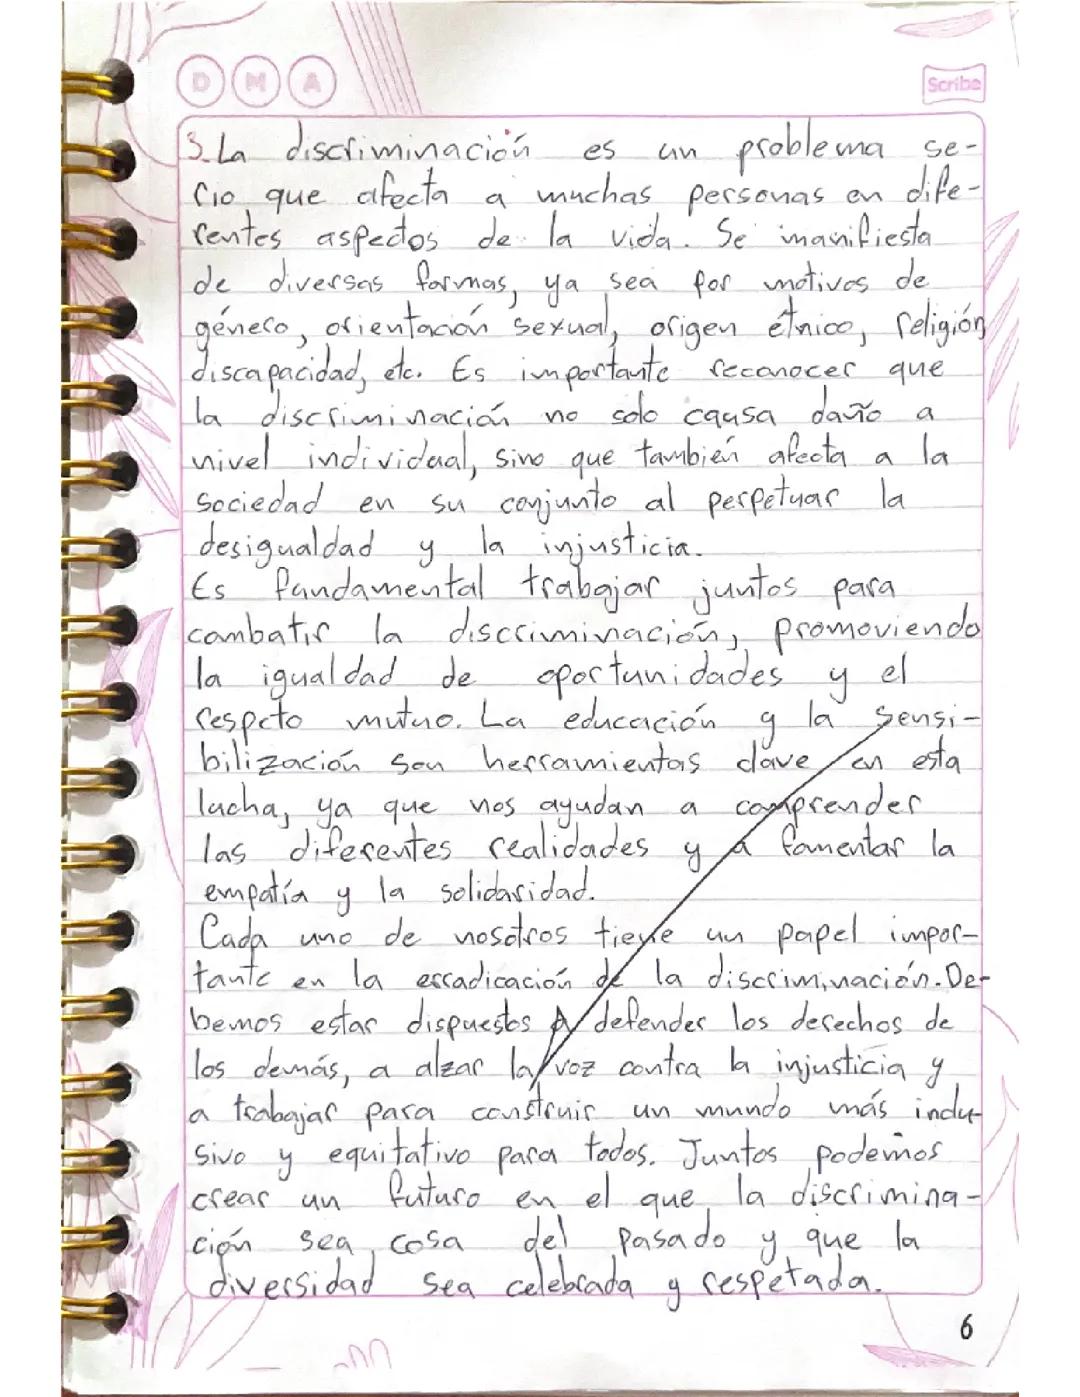 D M A
Scribe
3. La discriminación es un problema se-
rio que afecta a muchas personas en dife-
rentes aspectos de la vida. Se manifiesta
de diversas formas, ya sea por motivos de
género, orientación sexual, origen étnico, religión,
discapacidad, etc. Es importante reconocer que
la discriminación no solo causa daño a
nivel individual, sino que también afecta a la
sociedad en su conjunto al perpetuar la
desigualdad y la injusticia.
Es fundamental trabajar juntos para
combatir la discriminación, promoviendo
la igualdad de oportunidades y el
respeto mutuo. La educación y la sensi-
bilización son herramientas clave en esta
lucha, ya que nos ayudan a comprender
las diferentes realidades y a fomentar la
empatía y la solidaridad.
Cada uno de nosotros tiene un papel impor-
tante en la erradicación de la discriminación. De-
bemos estar dispuestos a defender los derechos de
los demás, a alzar la voz contra la injusticia y
a trabajar para construir un mundo más inclu-
sivo y equitativo para todos. Juntos podemos
crear un futuro en el que la discrimina-
ción sea cosa del pasado y que la
diversidad sea celebrada y respetada.
6